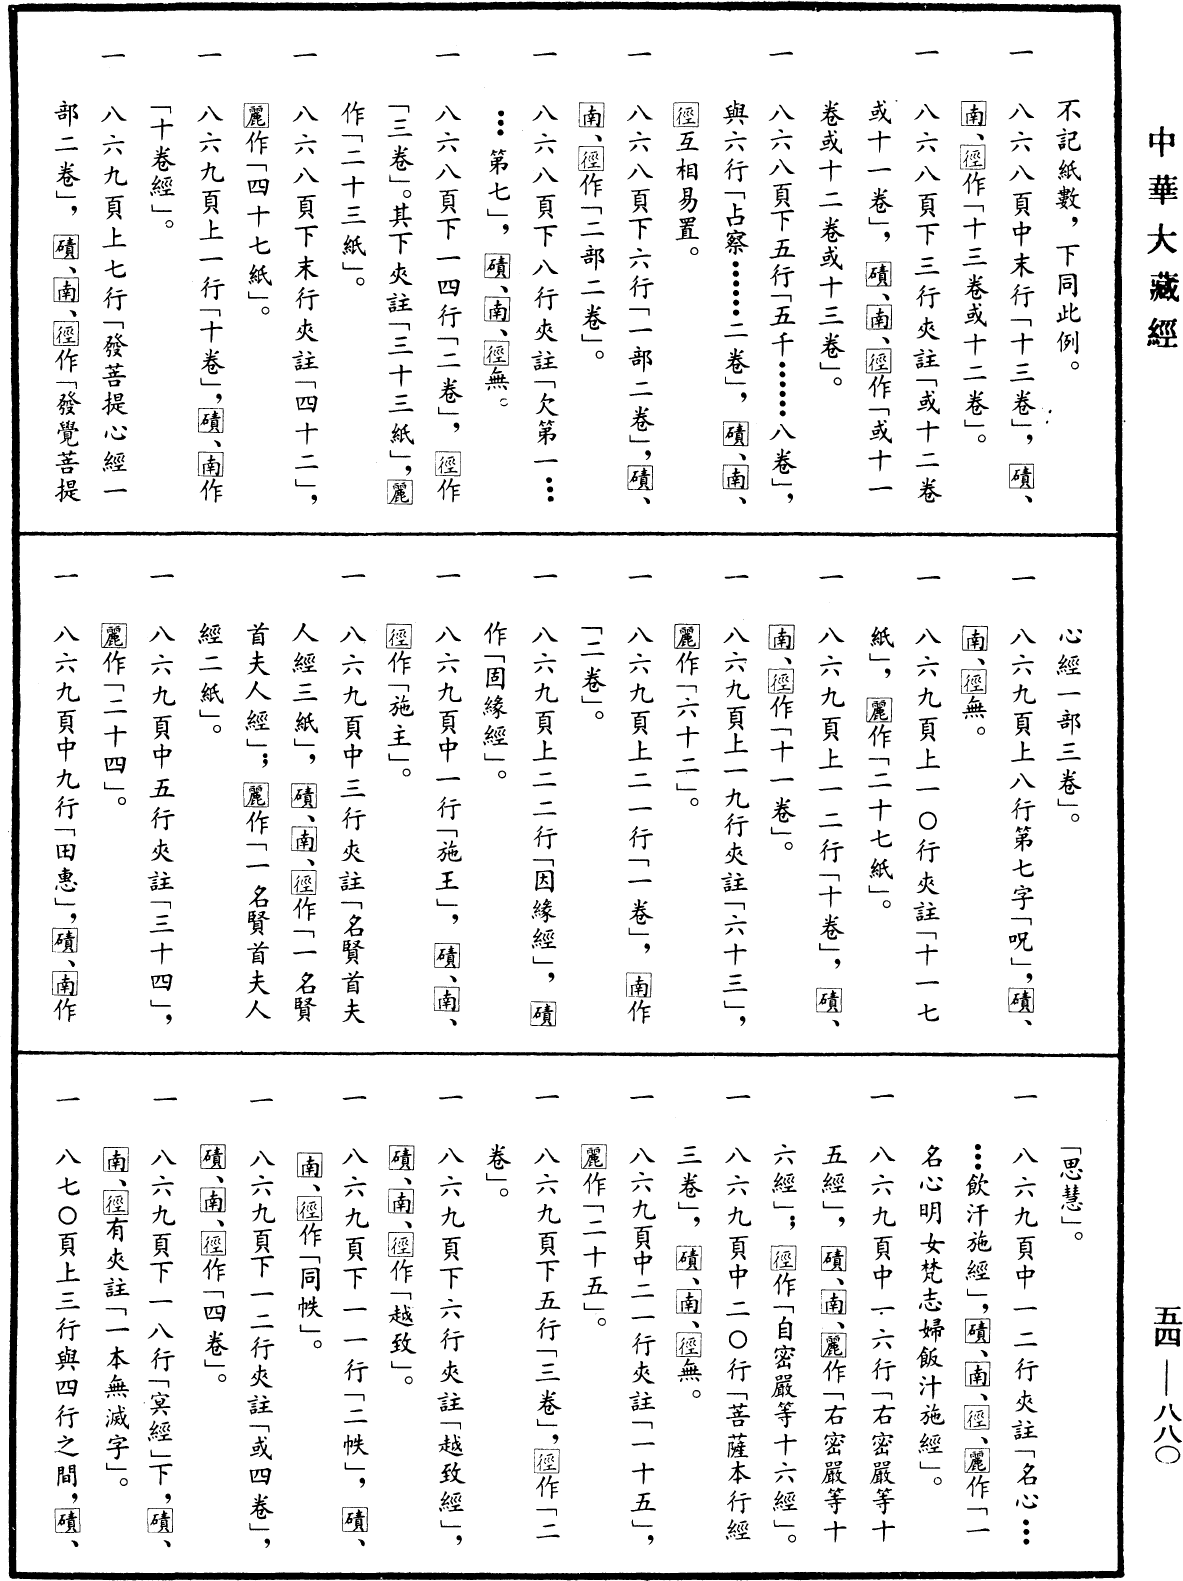 中華大藏經
不記紙數，下同此例。
一　八六八頁中末行「十三卷」，磧、
南、徑作「十三卷或十二卷」。
一　八六八頁下三行夾註「或十二卷
或十一卷」，磧、南、徑作「或十一
卷或十二卷或十三卷」。
一　八六八頁下五行「五千……八卷」，
與六行「占察……二卷」，磧、南、
徑互相易置。
一　八六八頁下六行「一部二卷」，磧、
南、徑作「二部二卷」。
一　八六八頁下八行夾註「欠第一…
…第七」，磧、南、徑無。
一　八六八頁下一四行「二卷」，徑作
「三卷」。其下夾註「三十三紙」，麗
作「二十三紙」。
一　八六八頁下末行夾註「四十二」，
麗作「四十七紙」。
一　八六九頁上一行「十卷」，磧、南作
「十卷經」。
一　八六九頁上七行「發菩提心經一
部二卷」，磧、南、徑作「發覺菩提
心經一部三卷」。
一　八六九頁上八行第七字「呪」，磧、
南、徑無。
一　八六九頁上一〇行夾註「十一七
紙」，麗作「二十七紙」。
一　八六九頁上一二行「十卷」，磧、
南、徑作「十一卷」。
一　八六九頁上一九行夾註「六十三」，
麗作「六十二」。
一　八六九頁上二一行「一卷」，南作
「二卷」。
一　八六九頁上二二行「因緣經」，磧
作「固緣經」。
一　八六九頁中一行「施王」，磧、南、
徑作「施主」。
一　八六九頁中三行夾註「名賢首夫
人經三紙」，磧、南、徑作「一名賢
首夫人經」；麗作「一名賢首夫人
經二紙」。
一　八六九頁中五行夾註「三十四」，
麗作「二十四」。
一　八六九頁中九行「田惠」，磧、南作
「思慧」。
一　八六九頁中一二行夾註「名心…
…飲汗施經」，磧、南、徑、麗作「一
名心明女梵志婦飯汁施經」。
一　八六九頁中一六行「右密嚴等十
五經」，磧、南、麗作「右密嚴等十
六經」；徑作「自密嚴等十六經」。
一　八六九頁中二〇行「菩薩本行經
三卷」，磧、南、徑無。
一　八六九頁中二一行夾註「一十五」，
麗作「二十五」。
一　八六九頁下五行「三卷」，徑作「二
卷」。
一　八六九頁下六行夾註「越致經」，
磧、南、徑作「越致」。
一　八六九頁下一一行「二帙」，磧、
南、徑作「同帙」。
一　八六九頁下一二行夾註「或四卷」，
磧、南、徑作「四卷」。
一　八六九頁下一八行「㝠經」下，磧、
南、徑有夾註「一本無滅字」。
一　八七〇頁上三行與四行之間，磧、
五四—八八〇